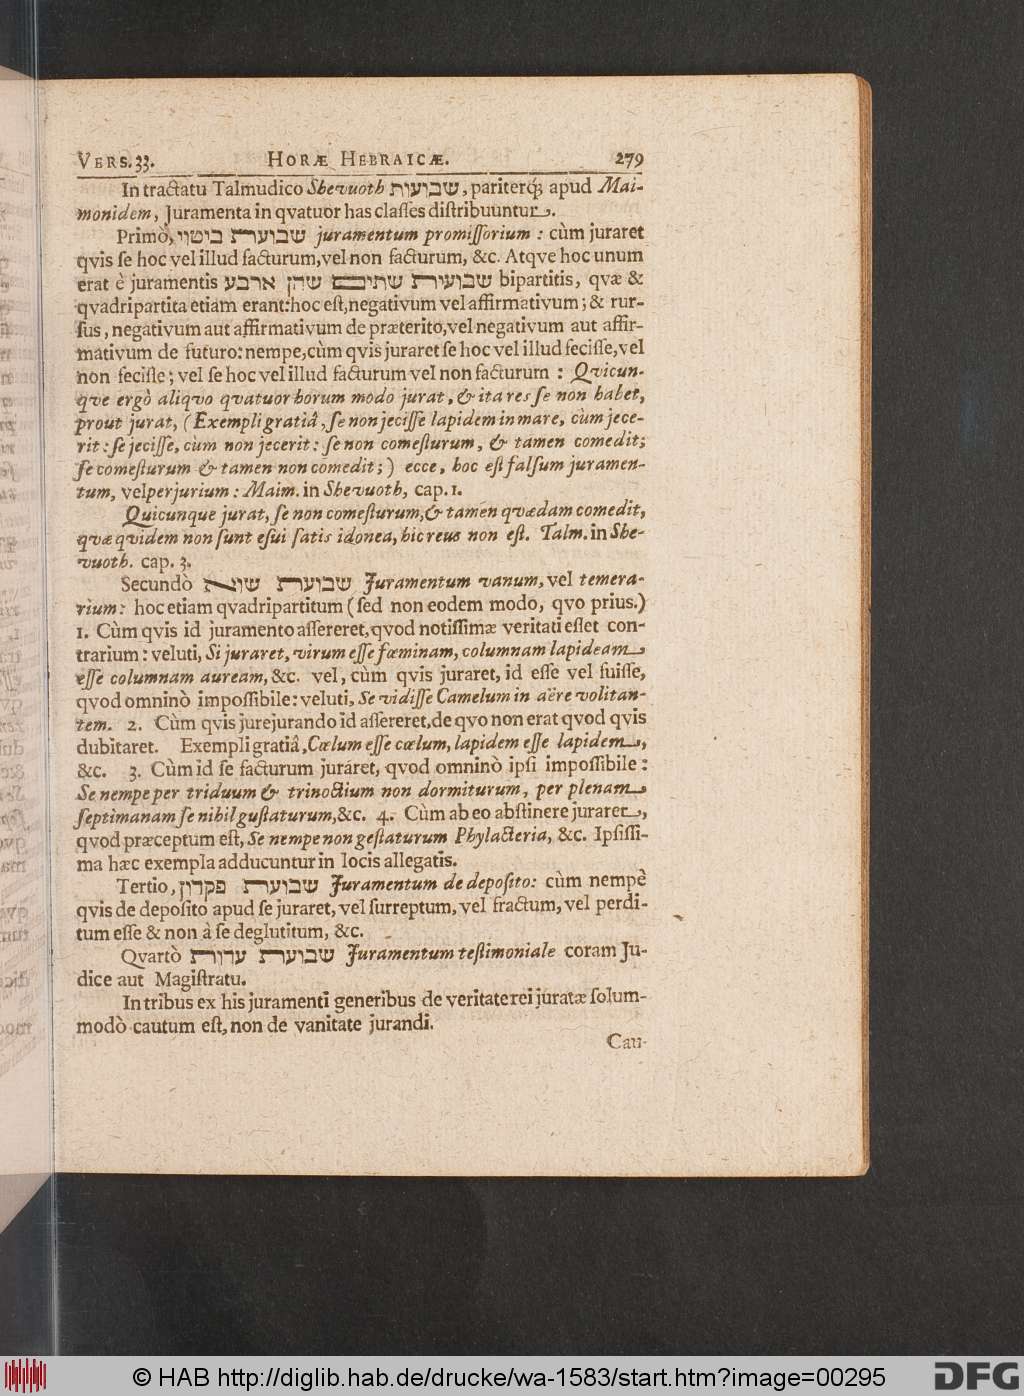 VERS. 33. HORÆ HEBRAICÆ. 279
In tractatu Talmudico Shevuoth שבועות, pariterq́; apud Mai-
monidem, Juramenta in qvatuor has classes distribuuntur.
Primò, שבועת ביטוי juramentum promissorium : cùm juraret
qvis se hoc vel illud facturum, vel non facturum, &c. Atqve hoc unum
erat è juramentis שבועות שתים שהן ארבע bipartitis, qvæ &
qvadripartita etiam erant: hoc est, negativum vel affirmativum; & rur-
sus, negativum aut affirmativum de præterito, vel negativum aut affir-
mativum de futuro: nempe, cùm qvis juraret se hoc vel illud fecisse, vel
non fecisse; vel se hoc vel illud facturum vel non facturum : Qvicun-
qve ergò aliqvo qvatuor horum modo jurat, & ita res se non habet,
prout jurat, (Exempli gratiâ, se non jecisse lapidem in mare, cùm jece-
rit: se jecisse, cùm non jecerit: se non comesturum, & tamen comedit;
se comesturum & tamen non comedit;) ecce, hoc est falsum juramen-
tum, vel perjurium: Maim. in Shevuoth, cap. 1.
Quicunque jurat, se non comesturum, & tamen qvædam comedit,
qvæ qvidem non sunt esui satis idonea, hic reus non est. Talm. in She-
vuoth. cap. 3.
Secundò שבועת שוא Juramentum vanum, vel temera-
rium: hoc etiam qvadripartitum (sed non eodem modo, qvo prius.)
1. Cùm qvis id juramento assereret, qvod notissimæ veritati esset con-
trarium: veluti, Si juraret, virum esse fœminam, columnam lapideam
esse columnam auream, &c. vel, cùm qvis juraret, id esse vel fuisse,
qvod omninò impossibile: veluti, Se vidisse Camelum in aëre volitan-
tem. 2. Cùm qvis jurejurando id assereret, de qvo non erat qvod qvis
dubitaret. Exempli gratiâ, Cœlum esse cœlum, lapidem esse lapidem,
&c. 3. Cùm id se facturum juraret, qvod omninò ipsi impossibile:
Se nempe per triduum & trinoctium non dormiturum, per plenam
septimanam se nihil gustaturum, &c. 4. Cùm ab eo abstinere juraret,
qvod præceptum est, Se nempe non gestaturum Phylacteria, &c. Ipsissi-
ma hæc exempla adducuntur in locis allegatis.
Tertio, שבועת פקדון Juramentum de deposito: cùm nempè
qvis de deposito apud se juraret, vel surreptum, vel fractum, vel perdi-
tum esse & non à se deglutitum, &c.
Qvartò שבועת עדות Juramentum testimoniale coram Ju-
dice aut Magistratu.
In tribus ex his juramenti generibus de veritate rei juratæ solum-
modò cautum est, non de vanitate jurandi.
Cau-
© HAB http://diglib.hab.de/drucke/wa-1583/start.htm?image=00295
DFG